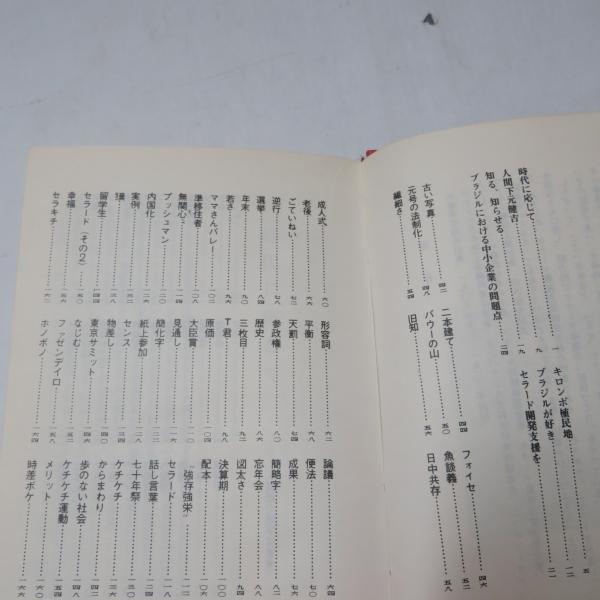 時代に応じて……一
キロンボ植民地……五
人間下元健吉……九
ブラジルが好き……二一
知る、知らせる……一九
セラード開発支援を
ブラジルにおける中小企業の問題点……二四
古い写真……四二
二本建て……四四
フォイセ……四六
元号の法制化……四八
バウーの山……五〇
魚談義……五二
繊細さ……五四
旧知……五六
日中共存……五八
成人式……六〇
形容詞……六二
論議……六四
老後……六六
平衡……六八
便法……七〇
ごていねい……七二
天罰……七四
成果……七六
逆行……七八
参政権……八〇
簡略字……八二
選挙……八四
歴史……八六
忘年会……八八
年末……九〇
三枚目……九二
図太さ……九四
若さ……九六
T君……九八
決算期……一〇〇
ママさんバレー……一〇二
原価……一〇四
配本……一〇六
準移住者……一〇八
大臣賞……一一〇
“強存強栄”……一一二
無関心……一一四
見通し……一一六
セラード……一一八
プッシュマン……一二〇
簡化字……一二二
話し言葉……一二四
内国化……一二六
紙上参加……一二八
七十年祭……一三〇
実例……一三二
センス……一三四
ケチケチ……一三六
……一三八
物差し……一四〇
からまわり……一四二
留学生……一四四
東京サミット……一四六
歩のない社会……一四八
セラード（その2）……一五〇
なじむ……一五二
ケチケチ運動……一五四
幸福……一五六
ファゼンデイロ……一五八
メリット……一六〇
セラキチ……一六二
ホノボノ……一六四
時差ボケ……一六六